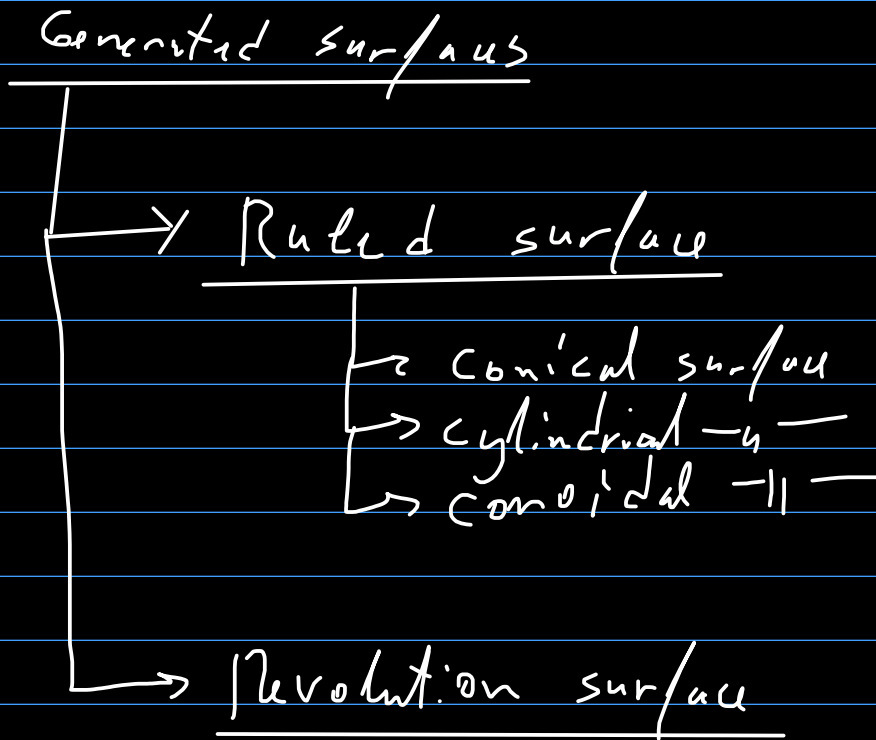 Generated surfaces
Ruled surface
Conical surface
cylindrial —"—
conoidal —||—
Revolution surface